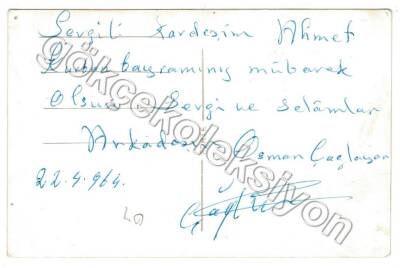 Sevgili Kardeşim Ahmet
Kurban bayramınız mübarek
Olsun Sevgi ve selâmlar
Arkadaşın Osman Çağlayan
22.4.964.
gökçekoleksiyon